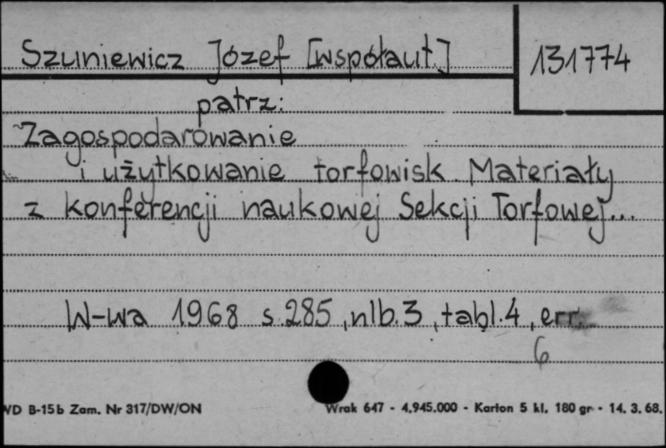 Szuniewicz Józef [współaut.]
131774
patrz:
Zagospodarowanie
i użytkowanie torfowisk. Materiały
z konferencji naukowej Sekcji Torfowej...
W-wa 1968 s.285, nlb.3, tabl.4, err.
6
WD B-15b Zam. Nr 317/DW/ON
Wrak 647 - 4.945.000 - Karton 5 kl. 180 gr - 14. 3. 68.